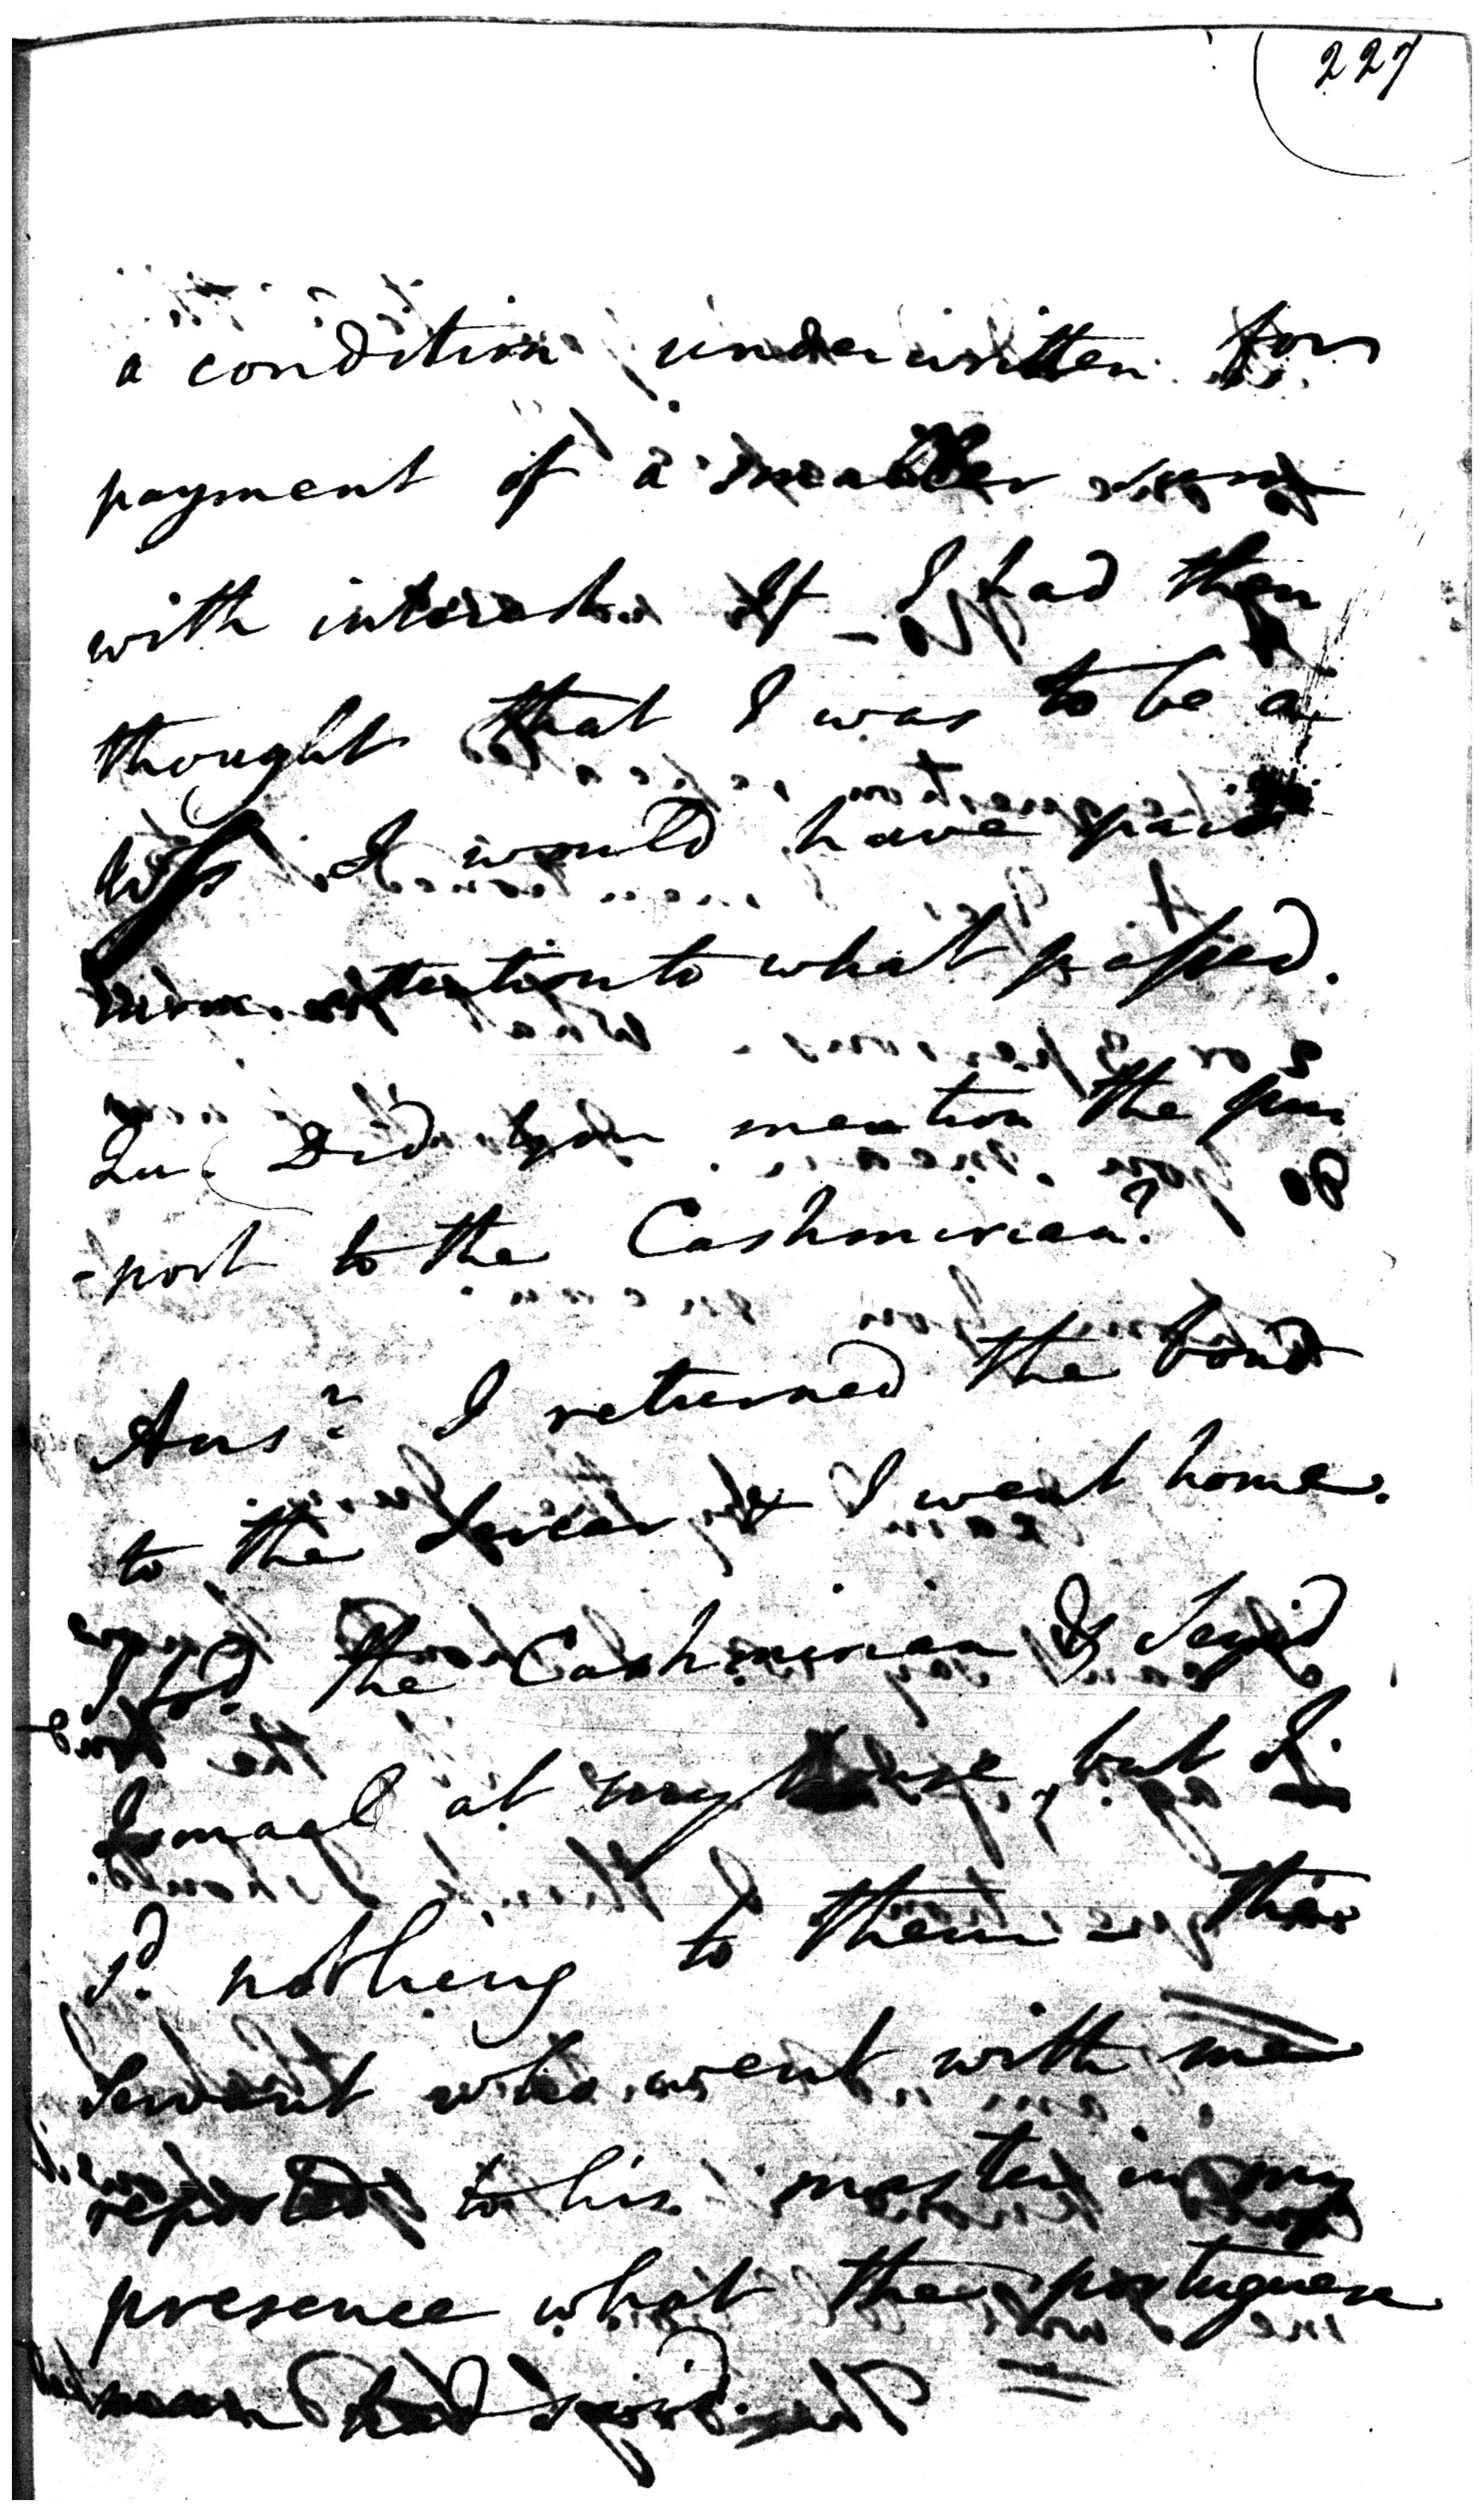 227
a condition underwritten for
payment of a smaller sum
with interest. If I had then
thought that I was to be a
I would have paid
more attention to what passed.
Qu. Did you mention the pur
-port to the Cashmirian?
Ansr. I returned the bond
to the & I went home.
I fod. the Cashmirian & Seyid
Ismael at my house, but I
sd. nothing to them - this
servant who went with me
reported to his master in my
presence what the portuguese
man had said.